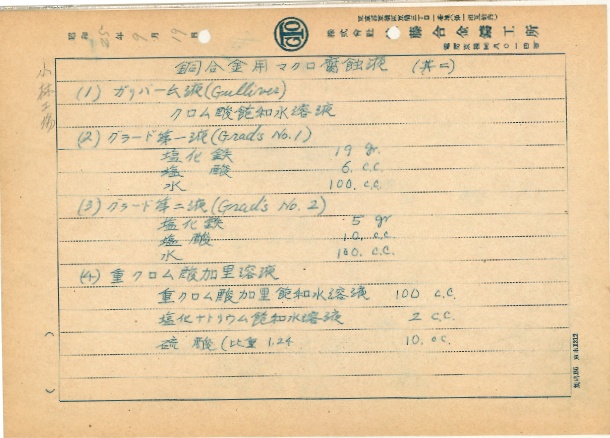 昭和 25 年 9 月 19 日
GTO
株式會社 藤合金鑄工所
銅合金用マクロ腐蝕液 (其二)
(1) ガリバーム液(Gulliver)
クロム酸飽和水溶液
(2) グラード第一液(Grad's No.1)
塩化鉄 19 gr.
塩酸 6. c.c.
水 100. c.c.
(3) グラード第二液(Grad's No. 2)
塩化鉄 5 gr
塩酸 10. c.c.
水 100. c.c.
(4) 重クロム酸加里溶液
重クロム酸加里飽和水溶液 100 c.c.
塩化ナトリウム飽和水溶液 2 c.c.
硫酸(比重 1.24 10. c.c.